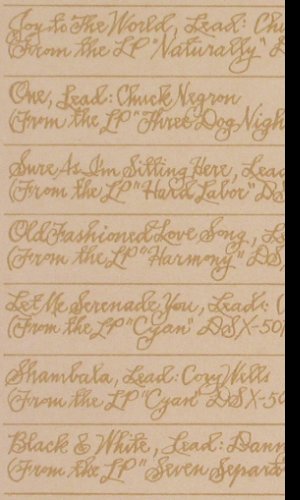 Joy to The World, Lead: Chu
(From the LP "Naturally" D
One, Lead: Chuck Negron
(From the LP "Three Dog Nigh
Sure As I'm Sitting Here, Lead
(From the LP "Hard Labor" DS
Old Fashioned Love Song, Le
(From the LP "Harmony" DS
Let Me Serenade You, Lead: C
(From the LP "Cyan" DSX-501
Shambala, Lead: Cory Wells
(From the LP "Cyan" DSX-50
Black & White, Lead: Dann
(From the LP "Seven Separat